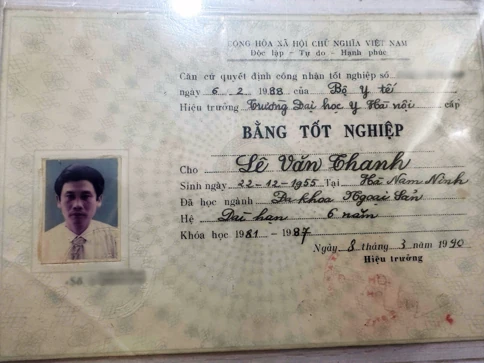 CỘNG HÒA XÃ HỘI CHỦ NGHĨA VIỆT NAM
Độc lập - Tự do - Hạnh phúc
Căn cứ quyết định công nhận tốt nghiệp số
ngày 6.2.1988 của Bộ Y tế
Hiệu trưởng Trường Đại học Y Hà nội cấp
BẰNG TỐT NGHIỆP
Cho Lê Văn Thanh
Sinh ngày 22-12-1955 Tại Hà Nam Ninh
Đã học ngành Đa khoa Ngoại Sản
Hệ Dài hạn 6 năm
Khóa học 1981 - 1987
Ngày 8 tháng 3 năm 1990
Hiệu trưởng
Số